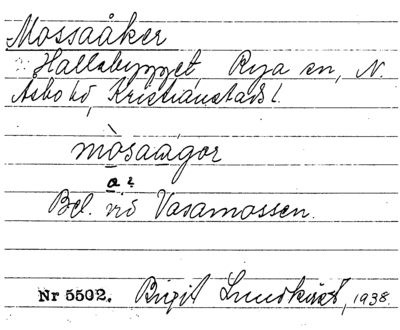 Mossaåker
Hallabygget, Rya sn, N.
Åsbo hd, Kristianstads l.
mòsaagor
a 2
Bel. vid Vasamossen.
Nr 5502. Birgit Lundkvist, 1938.